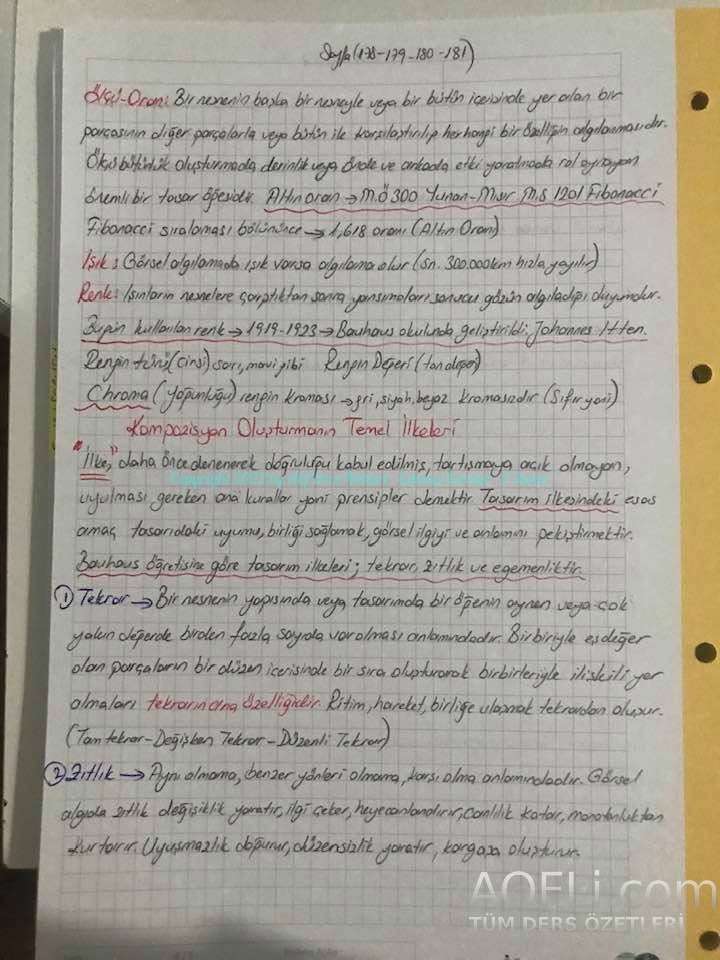 Sayfa (178-179-180-181)
Ölçü-Oran: Bir nesnenin başka bir nesneyle veya bir bütün içerisinde yer alan bir
parçasının diğer parçalarla veya bütün ile karşılaştırılıp herhangi bir özelliğin algılanmasıdır.
Ölçü bütünlük oluşturmada derinlik veya önde ve arkada etki yaratmada rol oynayan
önemli bir tasar öğesidir. Altın oran → M.Ö 300 Yunan-Mısır M.S 1201 Fibonacci
Fibonacci sıralaması bölününce → 1,618 oranı (Altın Oran)
Işık: Görsel algılamada ışık varsa algılama olur (sn. 300.000km hızla yayılır)
Renk: Işınların nesnelere çarptıktan sonra yansımaları sonucu gözün algıladığı duyumdur.
Bugün kullanılan renk → 1919-1923 → Bauhaus okulunda geliştirildi. Johannes Itten.
Rengin türü (cinsi) sarı, mavi gibi Rengin Değeri (ton değer)
Chroma (yoğunluğu) rengin kroması → gri, siyah, beyaz kromasızdır (Sıfır yani)
Kompozisyon Oluşturmanın Temel İlkeleri
"İlke," daha önce denenerek doğruluğu kabul edilmiş, tartışmaya açık olmayan,
uyulması gereken ana kurallar yani prensipler demektir. Tasarım ilkesindeki esas
amaç tasarıdaki uyumu, birliği sağlamak, görsel ilgiyi ve anlamını pekiştirmektir.
Bauhaus öğretisine göre tasarım ilkeleri; tekrar, zıtlık ve egemenliktir.
① Tekrar → Bir nesnenin yapısında veya tasarımda bir öğenin aynen veya çok
yakın değerde birden fazla sayıda var olması anlamındadır. Birbiriyle eşdeğer
olan parçaların bir düzen içerisinde bir sıra oluşturarak birbirleriyle ilişkili yer
almaları tekrarın ana özelliğidir. Ritim, hareket, birliğe ulaşmak tekrardan oluşur.
(Tam tekrar - Değişken Tekrar - Düzenli Tekrar)
② Zıtlık → Aynı olmama, benzer yönleri olmama, karşı olma anlamındadır. Görsel
algıda zıtlık değişiklik yaratır, ilgi çeker, heyecanlandırır, canlılık katar, monotonluktan
kurtarır. Uyuşmazlık doğurur, düzensizlik yaratır, kargaşa oluşturur.
AOFLi.com
TÜM DERS ÖZETLERİ